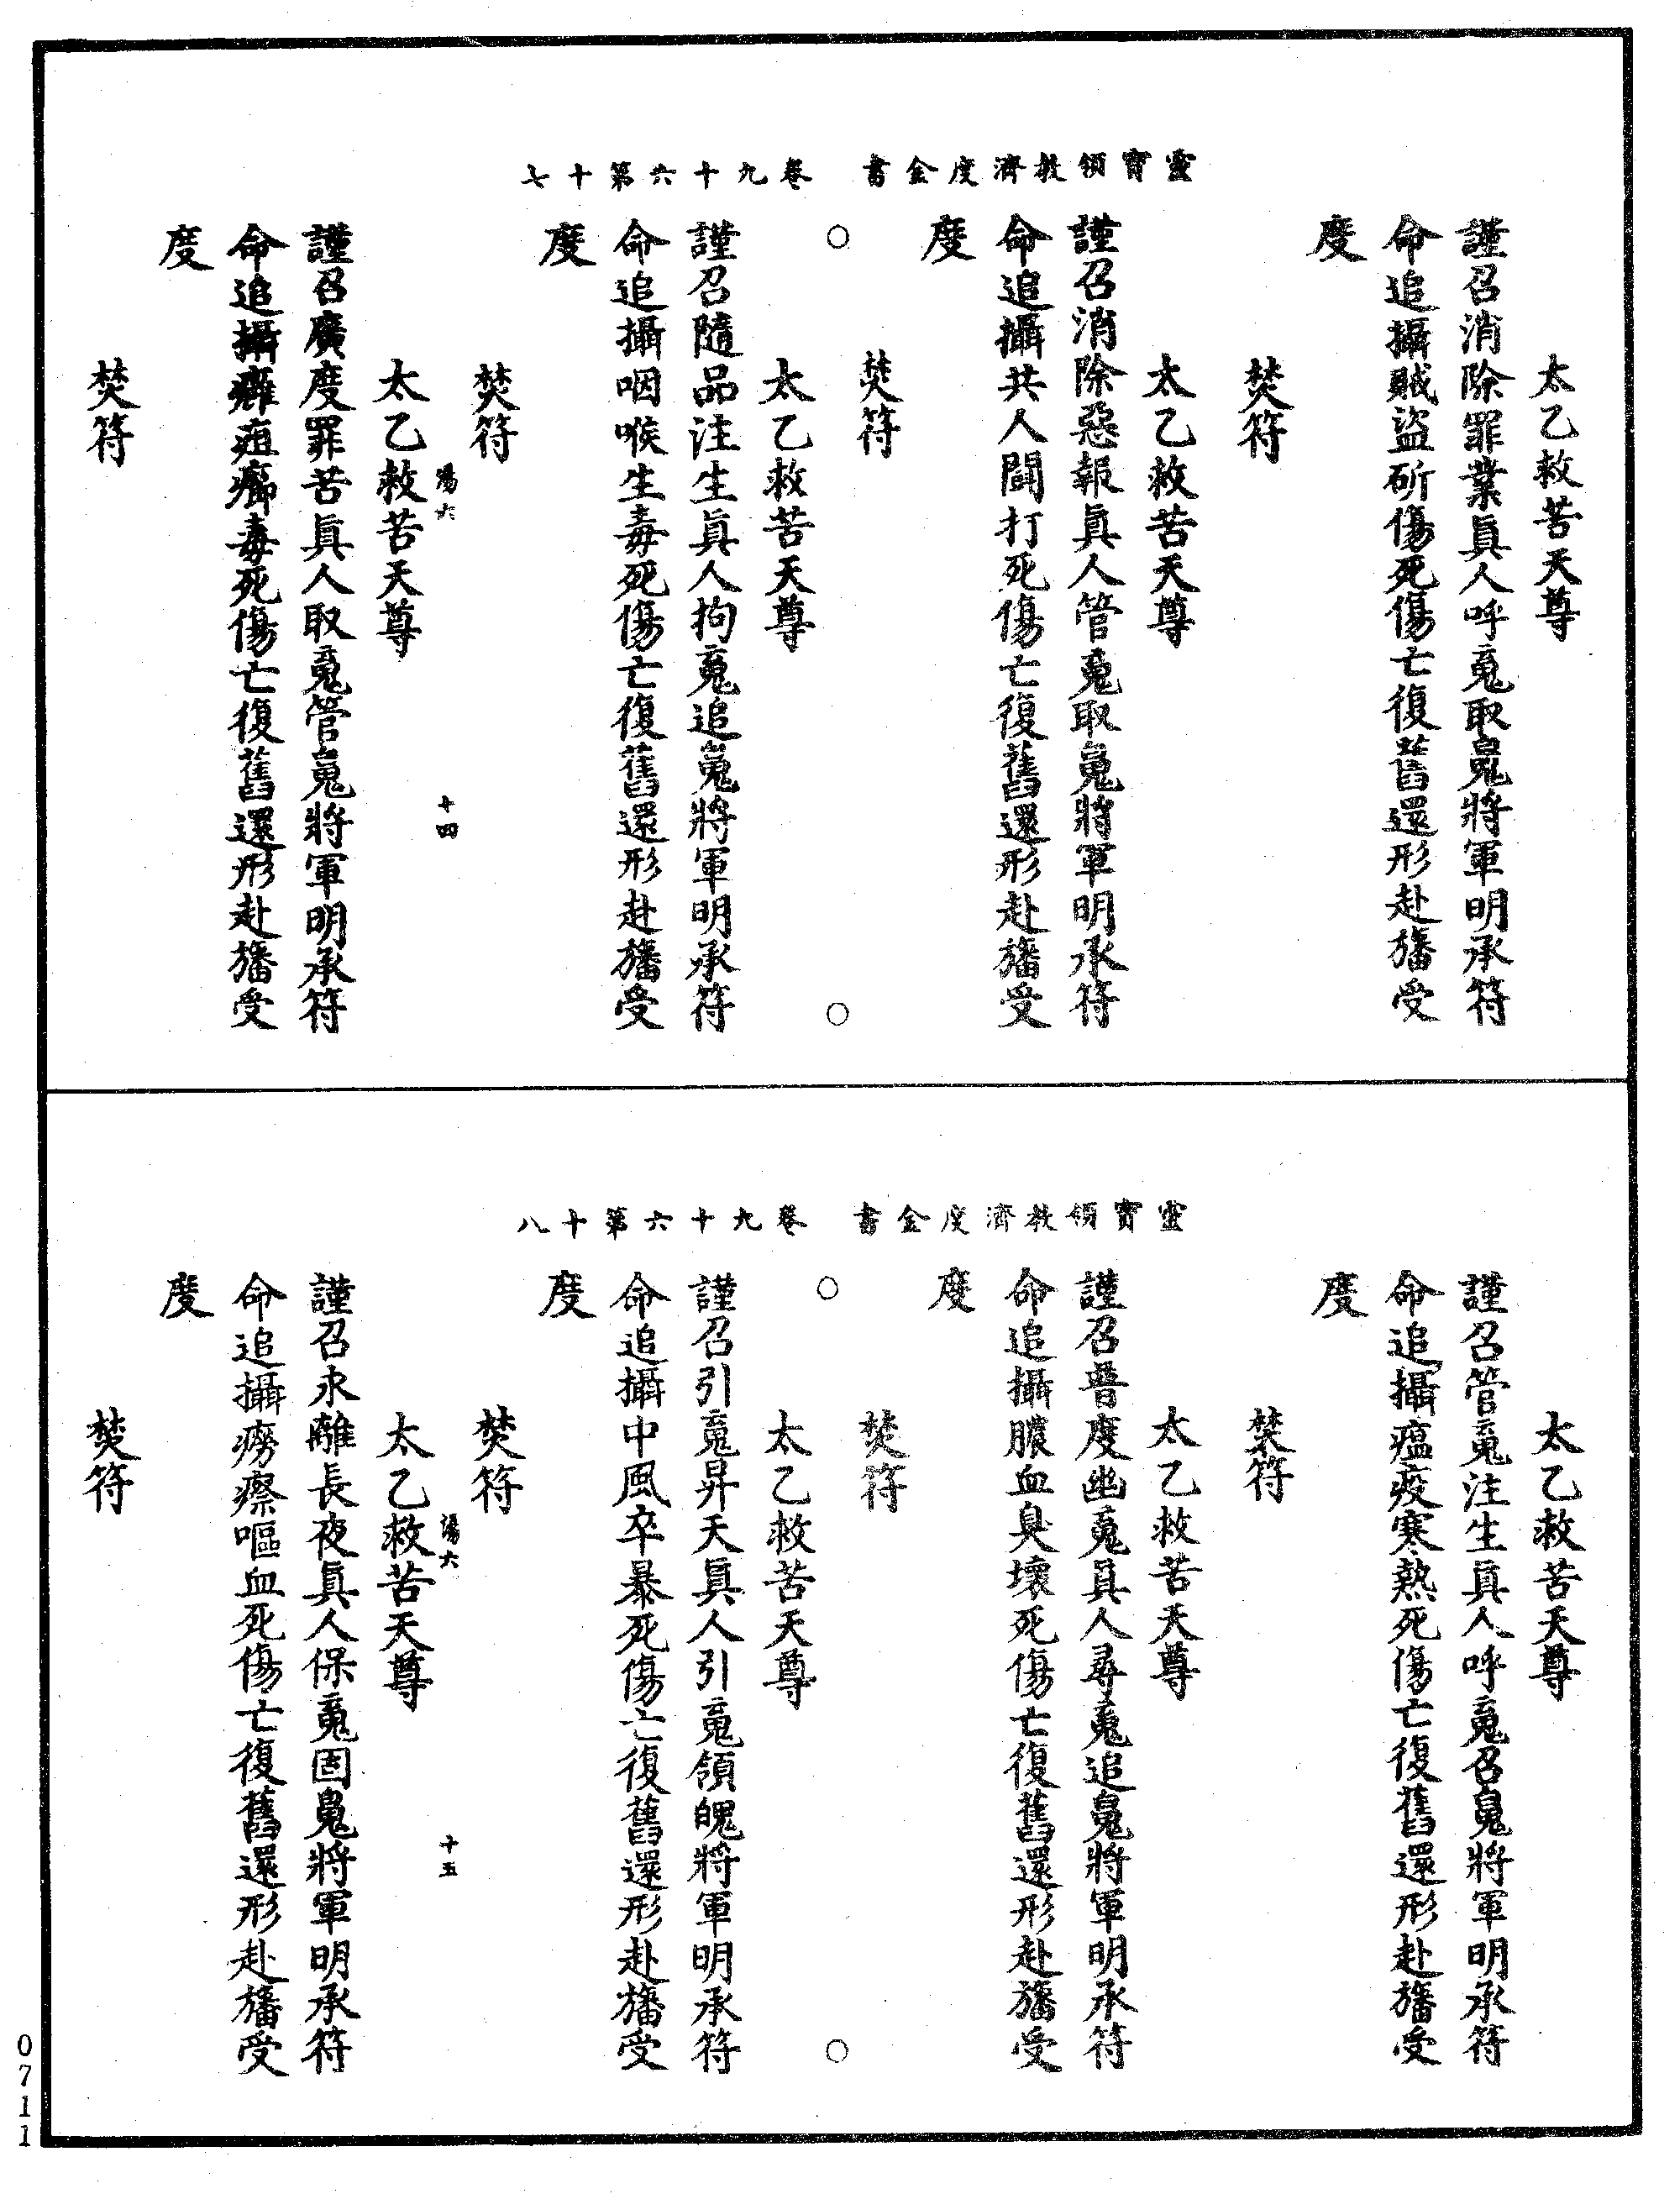 靈寶領教濟度金書 卷九十六第十七
太乙救苦天尊
謹召消除罪業眞人呼魂取魄將軍明承符
命追攝賊盜斫傷死傷亡復舊還形赴旛受
度
焚符
太乙救苦天尊
謹召消除惡報眞人管魂取魄將軍明承符
命追攝共人鬪打死傷亡復舊還形赴旛受
度
焚符
○ ○
太乙救苦天尊
謹召隨品注生眞人拘魂追魄將軍明承符
命追攝咽喉生毒死傷亡復舊還形赴旛受
度
焚符
湯六 十四
太乙救苦天尊
謹召廣度罪苦眞人取魂管魄將軍明承符
命追攝癰疽癤毒死傷亡復舊還形赴旛受
度
焚符
靈寶領教濟度金書 卷九十六第十八
太乙救苦天尊
謹召管魂注生眞人呼魂召魄將軍明承符
命追攝瘟疫寒熱死傷亡復舊還形赴旛受
度
焚符
太乙救苦天尊
謹召普度幽魂眞人尋魂追魄將軍明承符
命追攝膿血臭壞死傷亡復舊還形赴旛受
度
焚符
○ ○
太乙救苦天尊
謹召引魂昇天眞人引魂領魄將軍明承符
命追攝中風卒暴死傷亡復舊還形赴旛受
度
焚符
湯六 十五
太乙救苦天尊
謹召永離長夜眞人保魂固魄將軍明承符
命追攝癆瘵嘔血死傷亡復舊還形赴旛受
度
焚符
0711